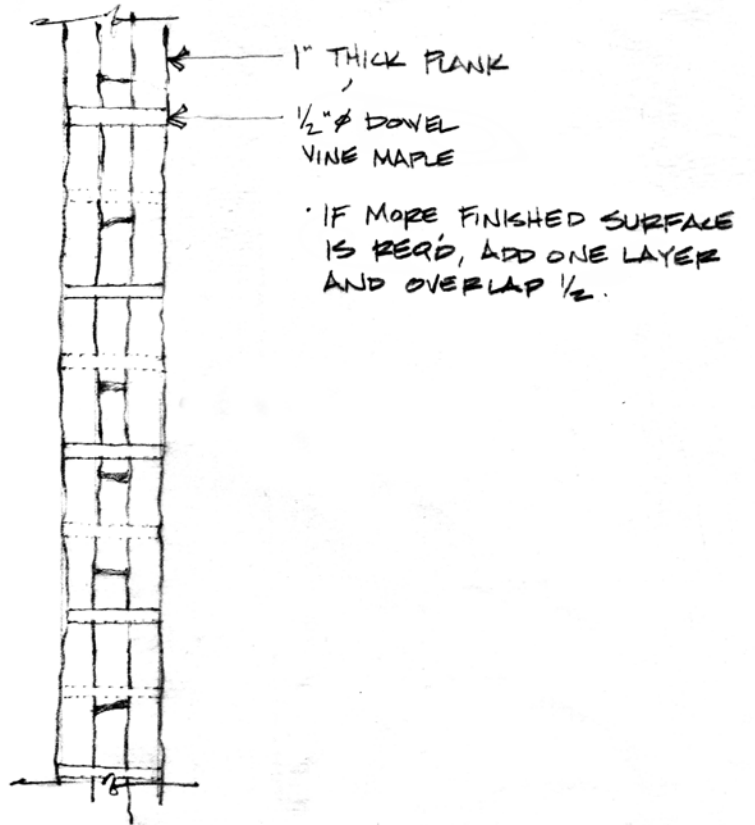 1" THICK PLANK
1/2" ø DOWEL
VINE MAPLE
· IF MORE FINISHED SURFACE
IS REQ'D, ADD ONE LAYER
AND OVERLAP 1/2.